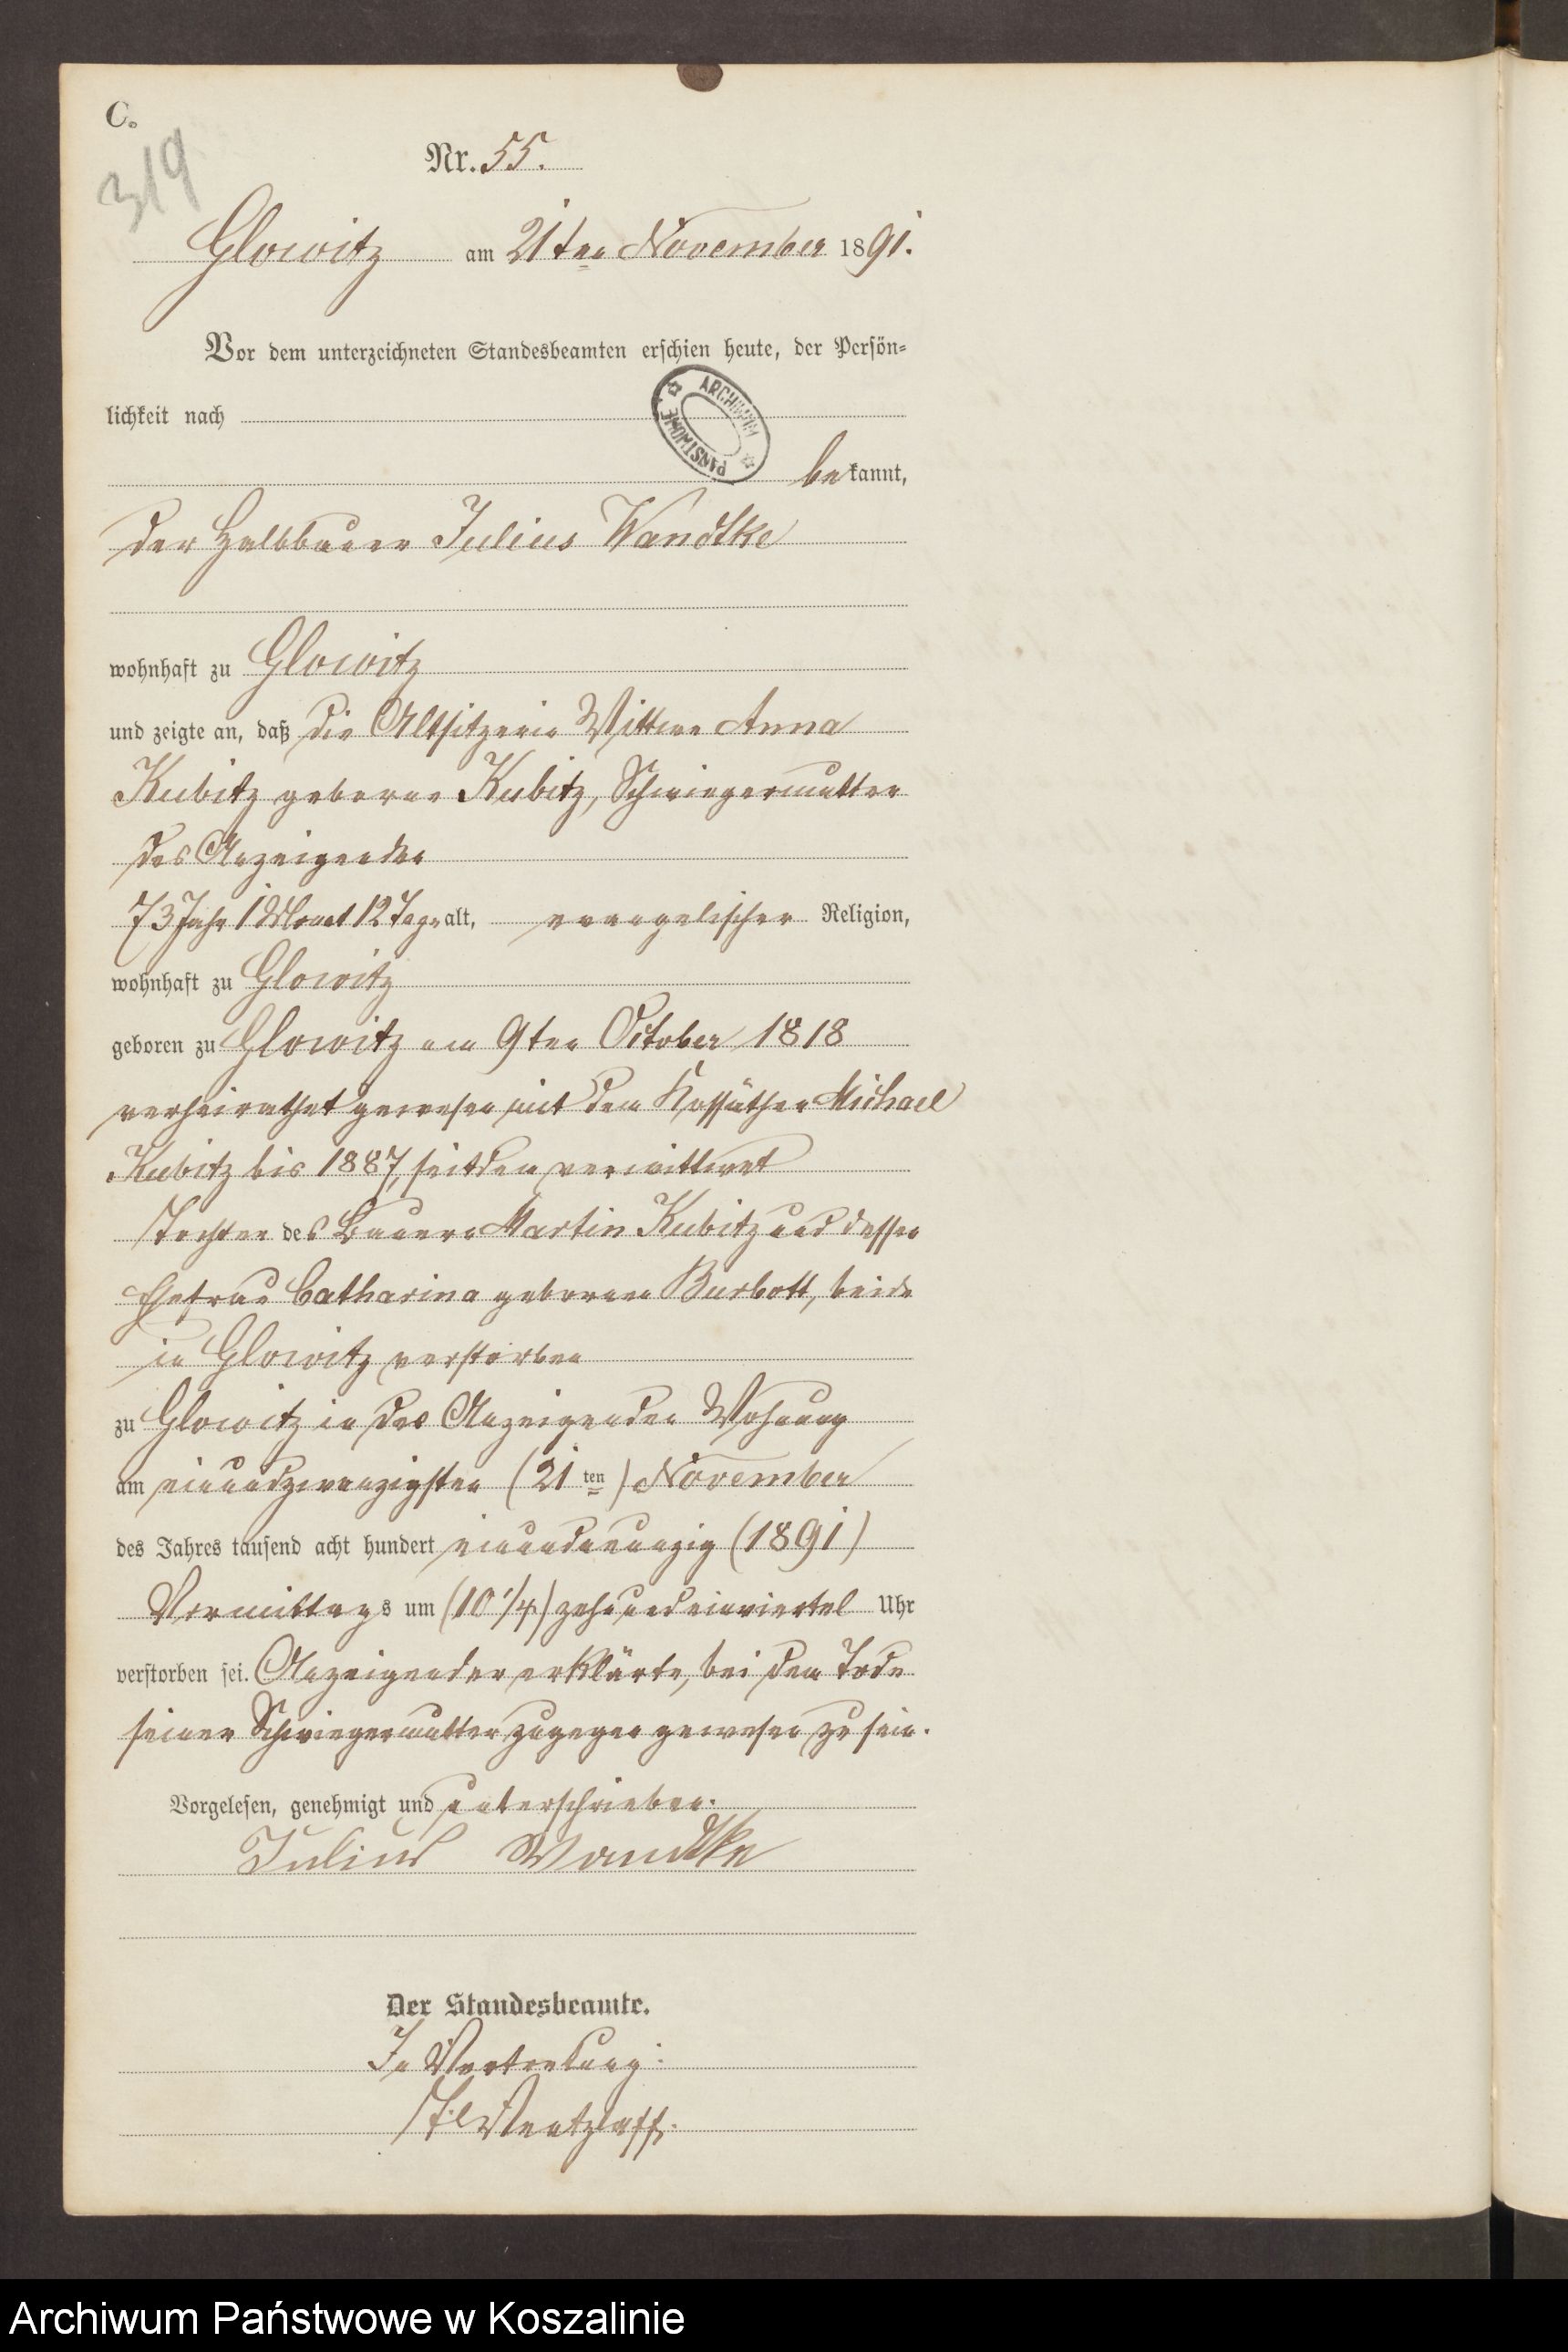 C.
319
Nr. 55.
Glowitz am 21ten November 1891.
Vor dem unterzeichneten Standesbeamten erschien heute, der Persön-
lichkeit nach
ARCHIWUM PAŃSTWOWE
bekannt,
der Halbbauer Julius Wandtke
wohnhaft zu Glowitz
und zeigte an, daß die Altsitzerin Wittwe Anna
Kubitz geborne Kubitz, Schwiegermutter
des Anzeigenden
73 Jahr 1 Monat 12 Tage alt, evangelischer Religion,
wohnhaft zu Glowitz
geboren zu Glowitz am 9ten October 1818
verheirathet gewesen mit dem Kossäthen Michael
Kubitz bis 1887, seitdem verwittwet
Tochter des Bauern Martin Kubitz und dessen
Ehefrau Catharina geborene Burbott, beide
in Glowitz verstorben
zu Glowitz in des Anzeigenden Wohnung
am einundzwanzigsten (21ten) November
des Jahres tausend acht hundert einundneunzig (1891)
Vormittags um (10 1/4) zehnundeinviertel Uhr
verstorben sei. Anzeigender erklärte, bei dem Tode
seiner Schwiegermutter zugegen gewesen zu sein.
Vorgelesen, genehmigt und unterschrieben.
Julius Wandtke
Der Standesbeamte.
In Vertretung:
Ventzlaff.
Archiwum Państwowe w Koszalinie